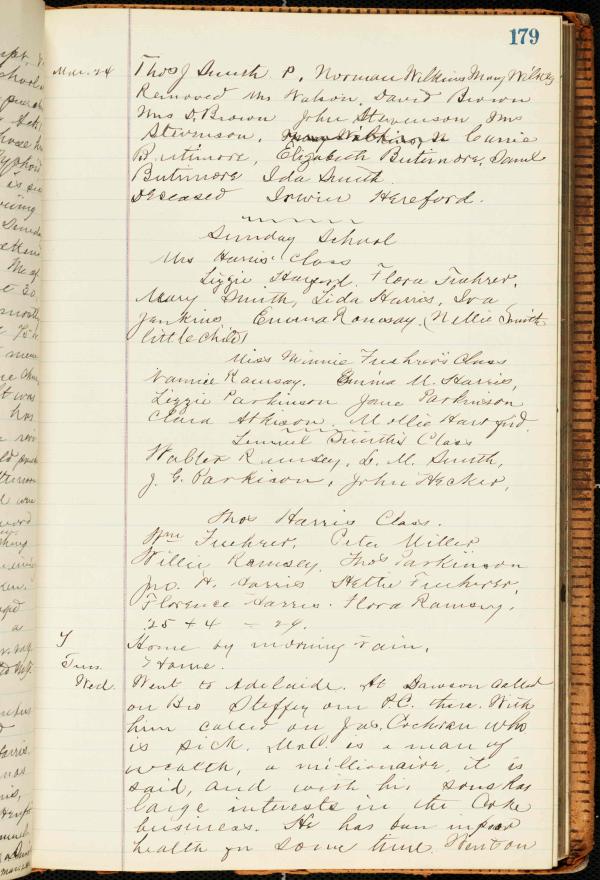 179
Mar. 24 Thos J Smith P. Norman Wilkins Mary Wilkins
Removed Mrs Watson, David Brown
Mrs D. Brown John Stevenson, Mrs
Stevenson, Carrie
Butimore, Elizabeth Butimore, Daniel
Butimore Ida Smith.
Deceased Irwin Hereford.
Sunday School
Mrs Harris' Class
Lizzie Flora Fuehrer,
Mary Smith, Lida Harris, Iva
Jenkins Emma Ramsay. (Nellie Smith
little child)
Miss Minnie Fuehrer's Class
Nannie Ramsay. Emma M. Harris,
Lizzie Parkinson Jane Parkinson
Clara Atkison. Mollie
Lemuel Smith's Class
Walter Ramsey, L. M. Smith,
J. G. Parkison, John Hecker,
Thos Harris Class.
Wm Fuehrer, Peter Miller
Willie Ramsey. Thos Parkinson
Jno. H. Harris Hettie Fuehrer,
Florence Harris. Flora Ramsey.
25 + 4 = 29.
Home by morning train.
Tues. Home.
Wed. Went to Adelaide. At Dawson called
on Bro Steffey our P.C. there. With
him called on Jas. Cochran who
is sick. Mr C. is a man of
wealth, a millionaire, it is
said, and with his sons has
large interests in the Coke
business. He has been in poor
health for some time. Went on